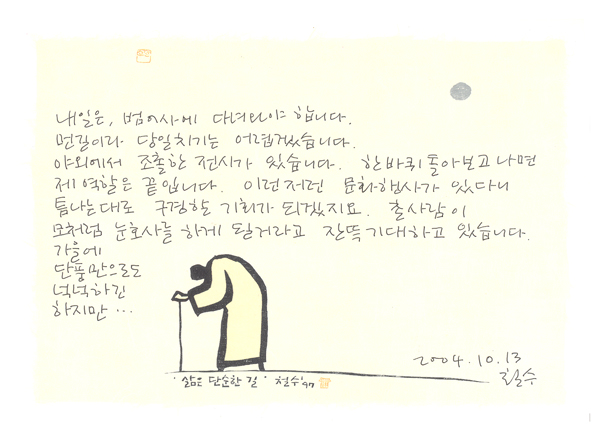 내일은, 범어사에 다녀와야 합니다.
먼길이라 당일치기는 어렵겠습니다.
야외에서 조촐한 전시가 있습니다. 한바퀴 돌아보고 나면
제 역할은 끝입니다. 이런저런 문화행사가 있다니
틈나는대로 구경할 기회가 되겠지요. 촌사람이
모처럼 눈호사를 하게 될거라고 잔뜩 기대하고 있습니다.
가을에
단풍만으로도
넉넉하긴
하지만 ...
2004.10.13
철수
'삶은 단순한 길' 철수 '97